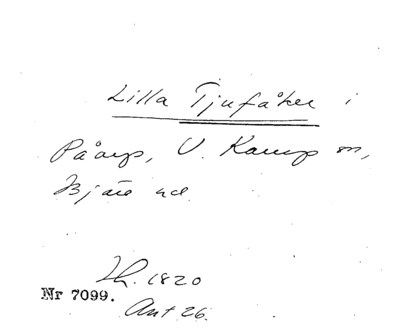 Lilla Tjufåker i
Påarp, V. Karup sn,
Bjäre hd.
Lh. 1820
Nr 7099.
Ant 26.